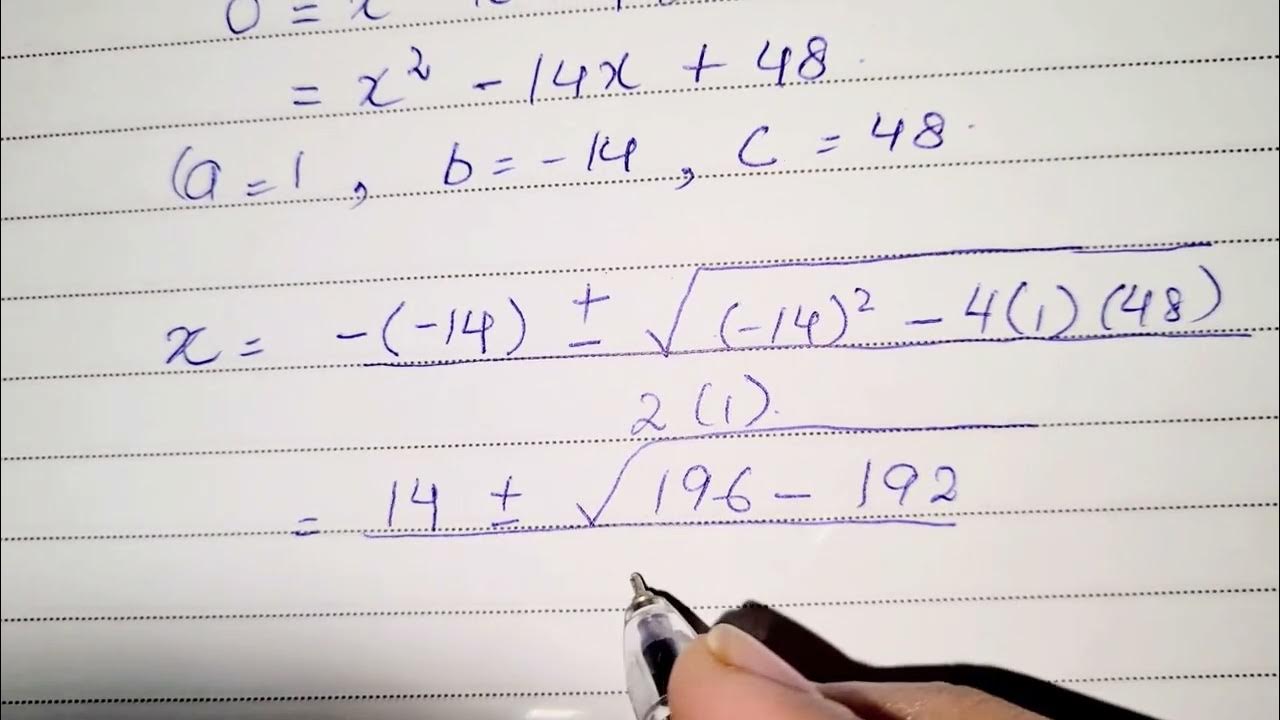 0 = x
= x² - 14x + 48
(a = 1, b = -14, c = 48
x = -(-14) ± √(-14)² - 4(1)(48)
2(1)
= 14 ± √196 - 192